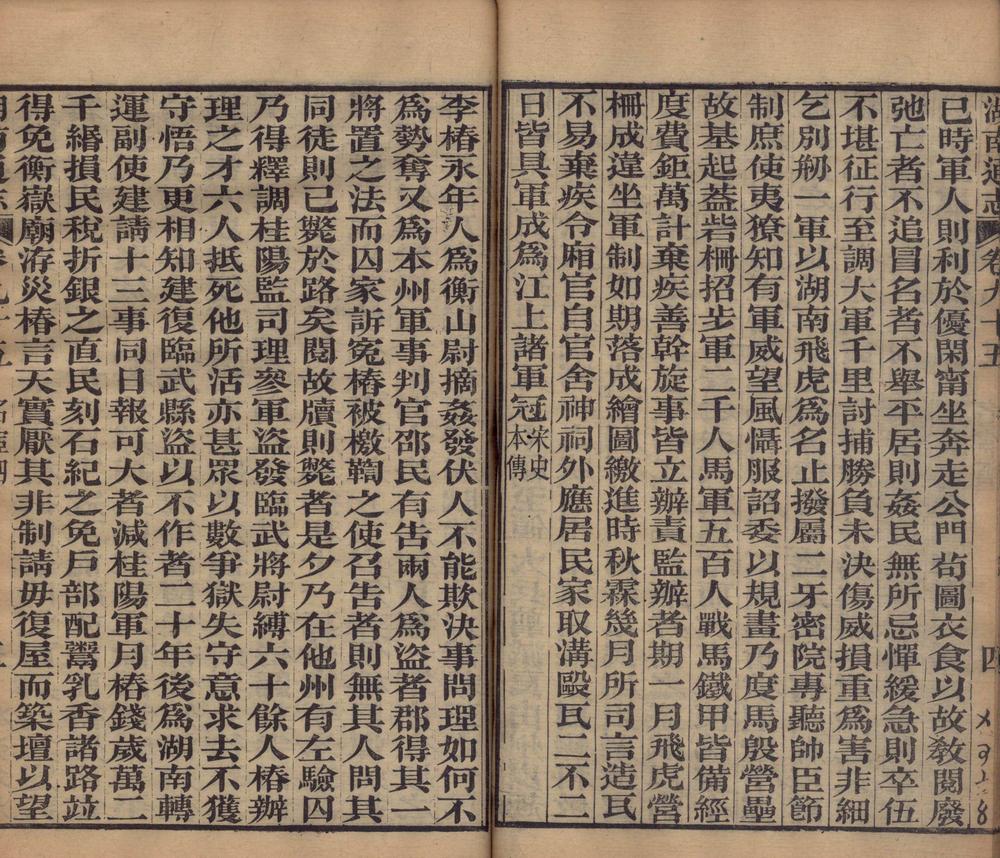 湖南通志 卷九十五 四
已時軍人則利於優閑甯坐奔走公門苟圖衣食以故敎閱廢
弛亡者不追冒名者不舉平居則姦民無所忌憚緩急則卒伍
不堪征行至調大軍千里討捕勝負未決傷威損重爲害非細
乞別剏一軍以湖南飛虎爲名止撥屬二牙密院專聽帥臣節
制庶使夷獠知有軍威望風懾服詔委以規畫乃度馬殷營壘
故基起葢砦柵招步軍二千人馬軍五百人戰馬鐵甲皆備經
度費鉅萬計棄疾善幹旋事皆立辦責監辦者期一月飛虎營
柵成違坐軍制如期落成繪圖繳進時秋霖幾月所司言造瓦
不易棄疾令廂官自官舍神祠外應居民家取溝毆瓦二不二
日皆具軍成爲江上諸軍冠宋史本傳
李椿永年人爲衡山尉摘姦發伏人不能欺決事問理如何不
爲勢奪又爲本州軍事判官邵民有告兩人爲盜者郡得其一
將置之法而囚家訴冤椿被檄鞫之使召告者則無其人問其
同徒則已斃於路矣閱故牘則斃者是夕乃在他州有左驗囚
乃得釋調桂陽監司理參軍盜發臨武將尉縛六十餘人椿辦
理之才六人抵死他所活亦甚眾以數爭獄失守意求去不獲
守悟乃更相知建復臨武縣盜以不作者二十年後爲湖南轉
運副使建請十三事同日報可大者減桂陽軍月樁錢歲萬二
千緡損民稅折銀之直民刻石紀之免戶部配鬻乳香諸路竝
得免衡嶽廟洊災椿言天實厭其非制請毋復屋而築壇以望